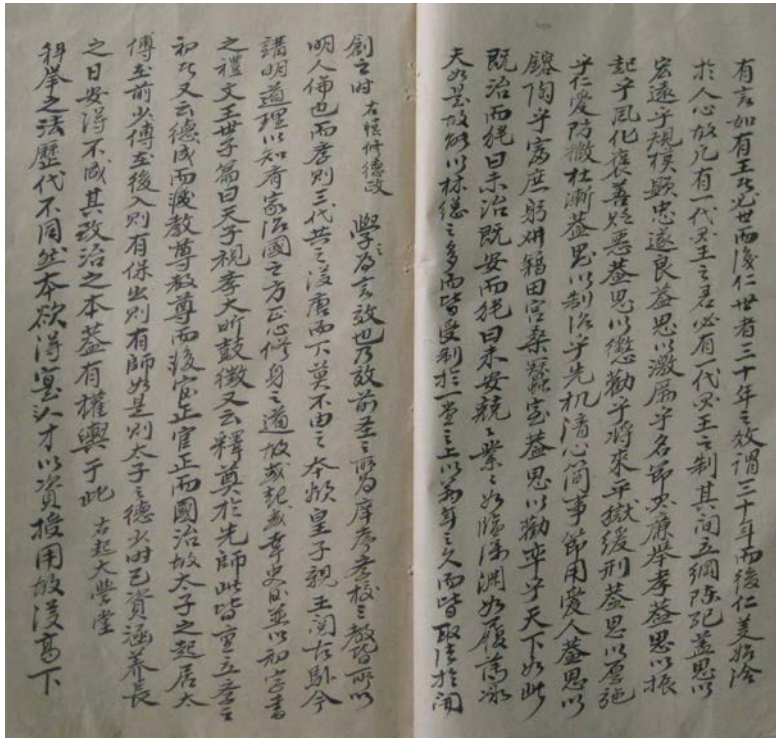 有言如有王者必世而後仁世者三十年之效謂三十年而後仁美始洽
於人心故凡有一代聖王之君必有一代聖王之制其间立綱陈纪蓋思以
宏遠乎規模顯忠遂良蓋思以激厲乎名節興廉举孝蓋思以振
起乎風化褒善貶惡蓋思以懲勸乎將來平獄緩刑蓋思以廣施
乎仁爱防微杜漸蓋思以制治乎先机清心简事節用爱人蓋思以
鎔陶乎富庶躬耕籍田宫桑蠶室蓋思以勸率乎天下如此
既治而猶曰未治既安而猶曰未安兢兢業業如臨深淵如履薄冰
夫如是故能以林总之多而皆受制於一堂之上以萬年之久而皆取法於開
創之时 右慎修德政 學之為言效也乃效前圣之所為庠序学校之教皆所以
明人倫也而学則三代共之漢唐而下莫不由之本欲皇子親王阁在卧今
講明道理以知齐家治國之方正心修身之道故或記或章史臣並以初字書
之禮文王世子篇曰天子視孝大昕鼓徵又云釋奠於先師此皆重立学之
初者又云德成而後教尊教尊而後官正官正而國治故太子之起居太
傅在前少傅在後入則有保出則有師如是則太子之德少时已資涵养長
之日安得不成其政治之本蓋有權輿于此 右起大學堂
科举之法歷代不同然本欲得實人才以資援用故没高下